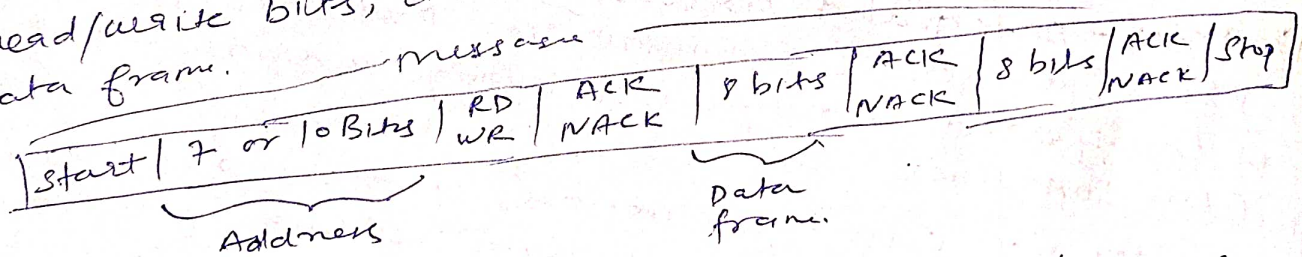 read/write bits,
ata frame.
message
Start | 7 or 10 Bits | RD WR | ACK NACK | 8 bits | ACK NACK | 8 bits | ACK NACK | Stop
Address
Data
frame.